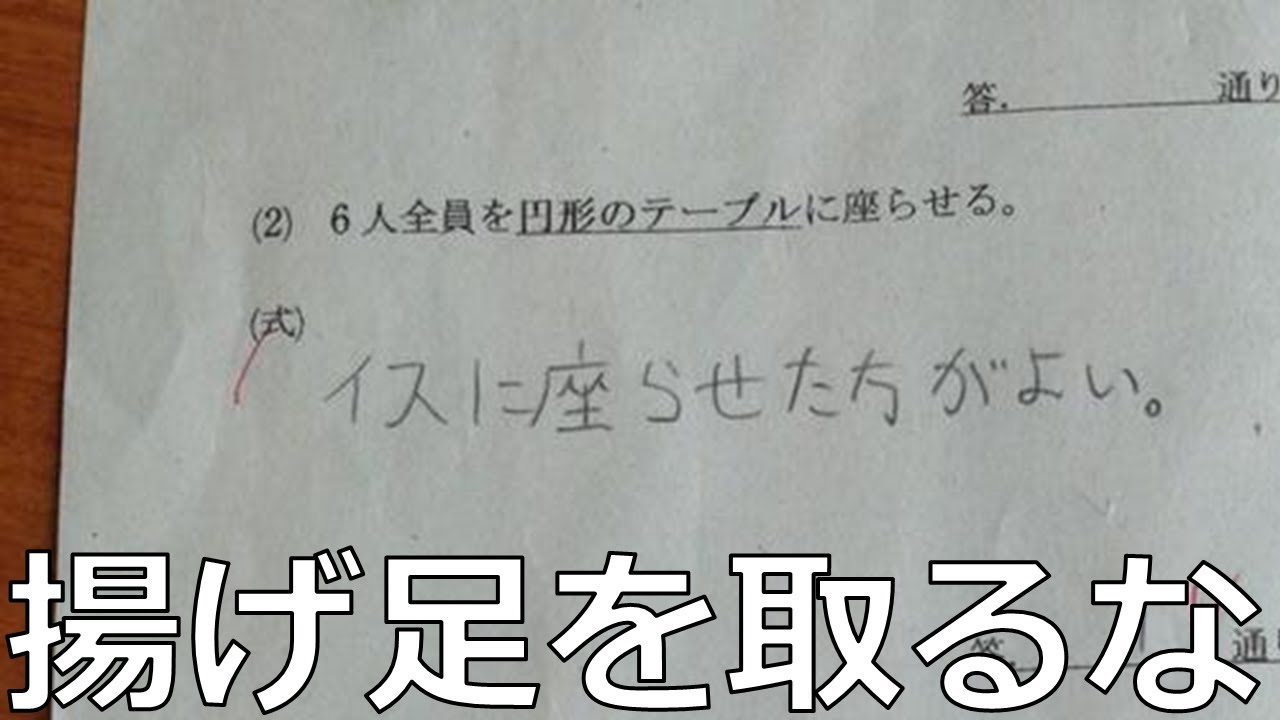 答. 通り
(2) 6人全員を円形のテーブルに座らせる。
(式)
イスに座らせた方がよい。
答. 通り
揚げ足を取るな